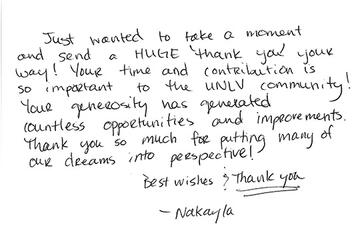 Just wanted to take a moment
and send a HUGE "thank you" your
way! Your time and contribution is
so important to the UNLV community!
Your generosity has generated
countless opportunities and improvements.
Thank you so much for putting many of
our dreams into perspective!
Best wishes & Thank you
- Nakayla